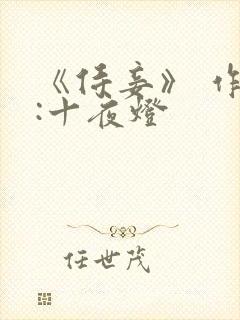 《侍妾》 作
:十夜燈
任世茂